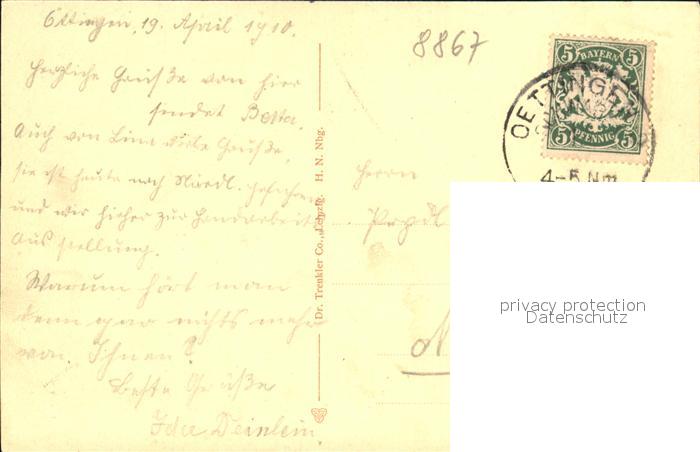 Öttingen, 19. April 1910.
Herzliche Grüße von hier
sendet Betta.
Auch von Lina viele Grüße,
sie ist heute nach Nördl. gefahren
und wir hieher zur Handarbeit
ausstellung.
Warum hört man
denn gar nichts mehr
von Ihnen?
Beste Grüße
Deinlein.
Dr. Trenkler Co., Leipzig. H. N. Nbg.
8867
5 5
BAYERN
5 PFENNIG 5
OETTINGEN
4-5 Nm
Herrn
privacy protection
Datenschutz